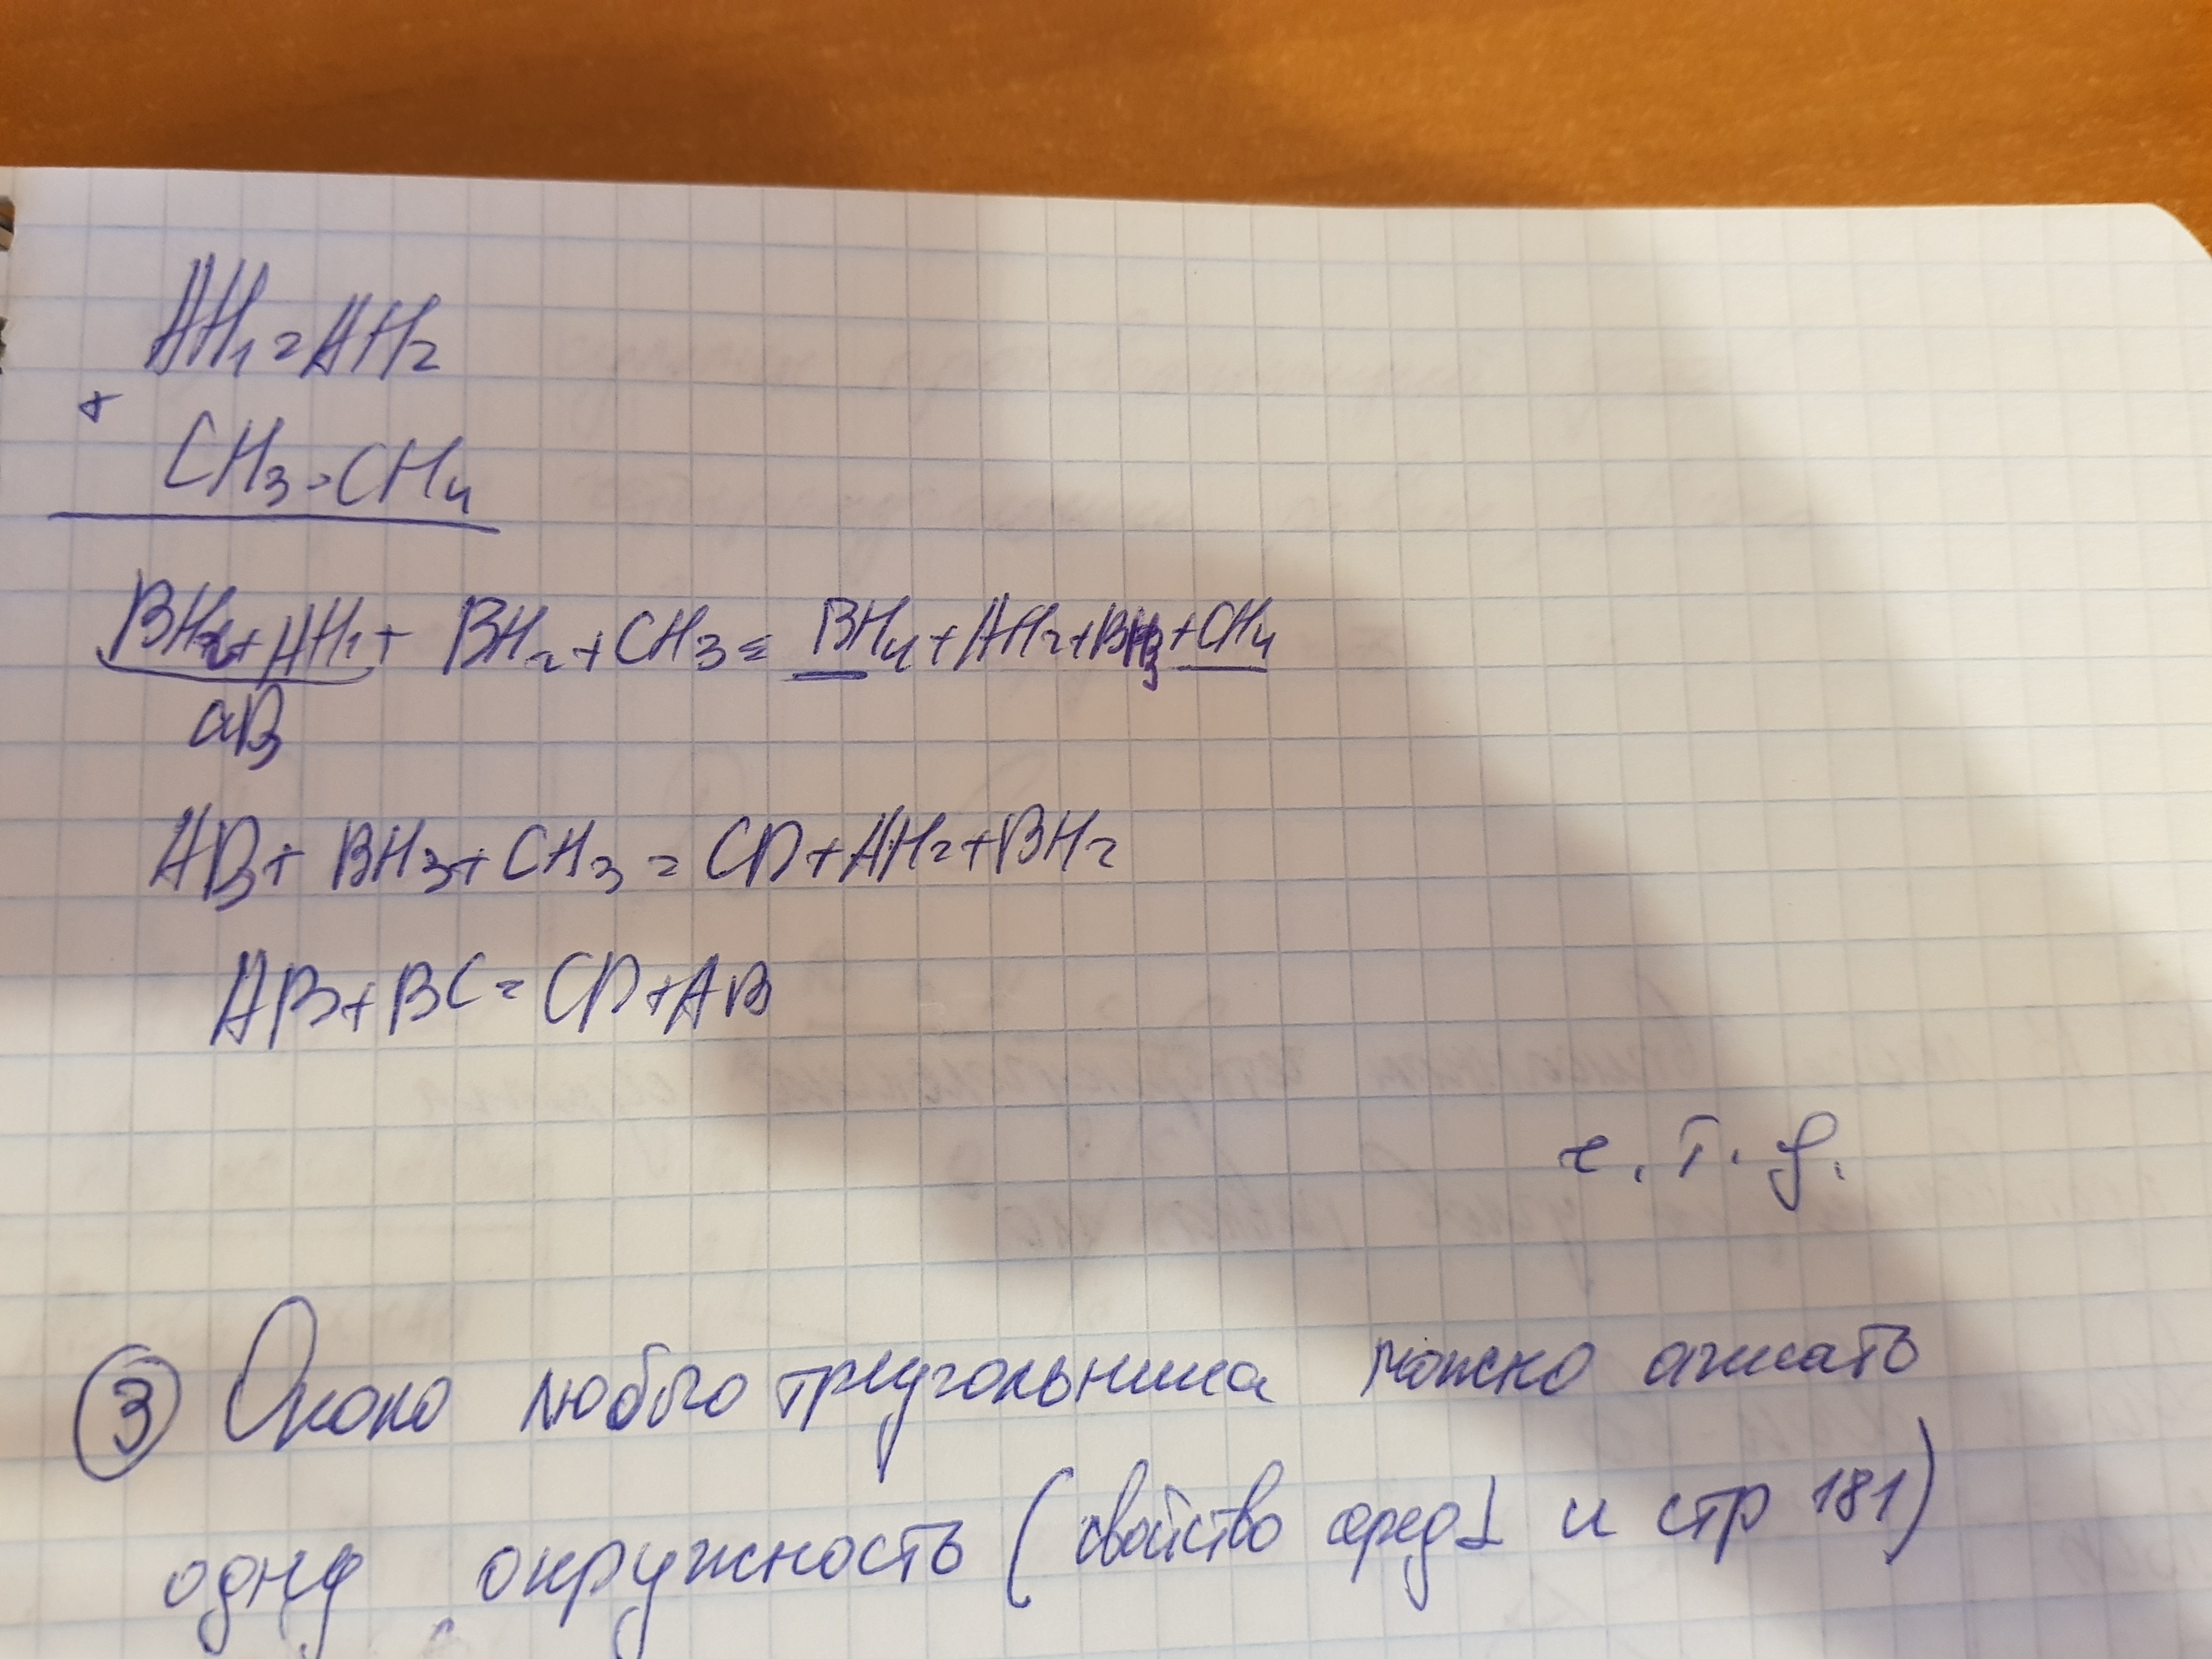 AH₁ = AH₂
+
CH₃ = CH₄
BH₂ + AH₁ + BH₂ + CH₃ = BH₄ + AH₂ + BH₃ + CH₄
aB
AB + BH₃ + CH₃ = CD + AH₂ + BH₂
AB + BC = CD + AB
ч. т. д.
③ Около любого треугольника можно описать
одну окружность (свойство серед⊥ и стр 181)